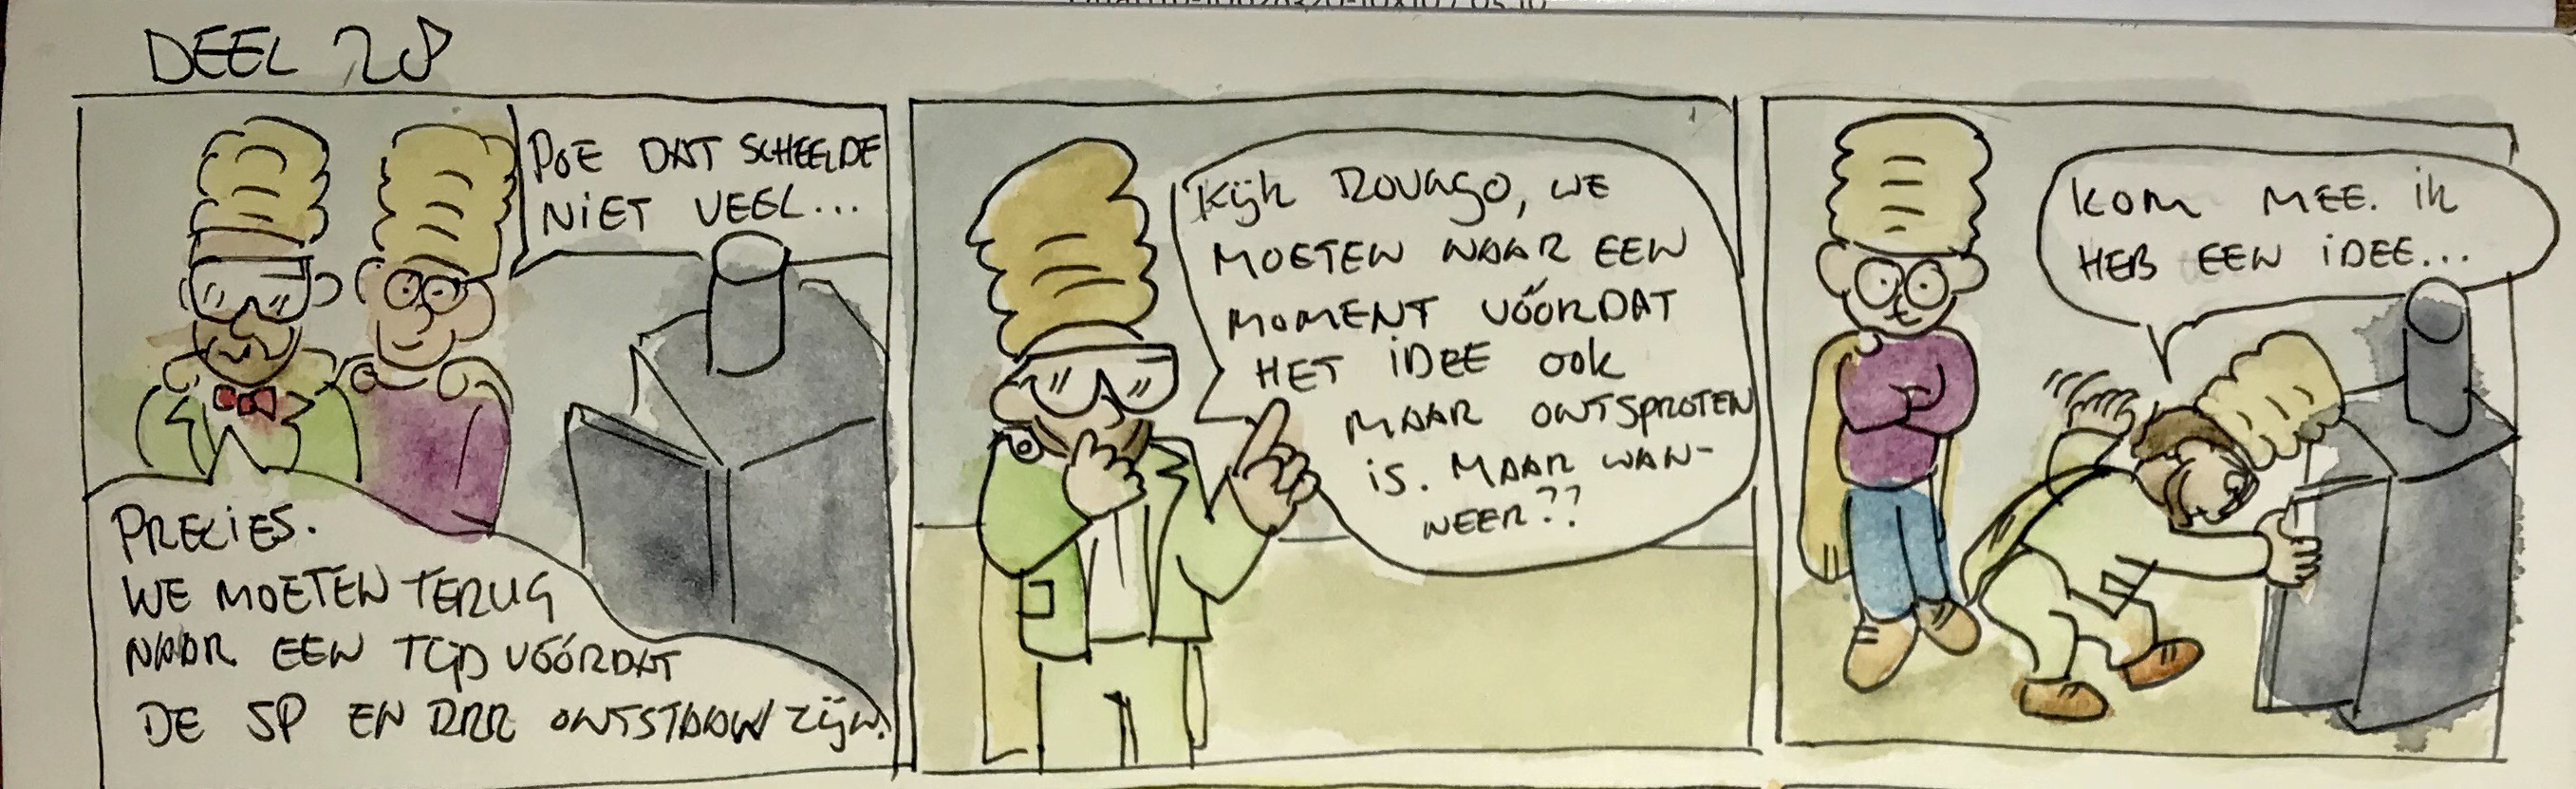 DEEL 28
POE DAT SCHEELDE
NIET VEEL...
PRECIES.
WE MOETEN TERUG
NAAR EEN TIJD VÓÓRDAT
DE SP EN RRR ONTSTAAN ZIJN.
KIJK ROVAGO, WE
MOETEN NAAR EEN
MOMENT VÓÓRDAT
HET IDEE OOK
MAAR ONTSPROTEN
IS. MAAR WAN-
NEER??
KOM MEE. IK
HEB EEN IDEE...